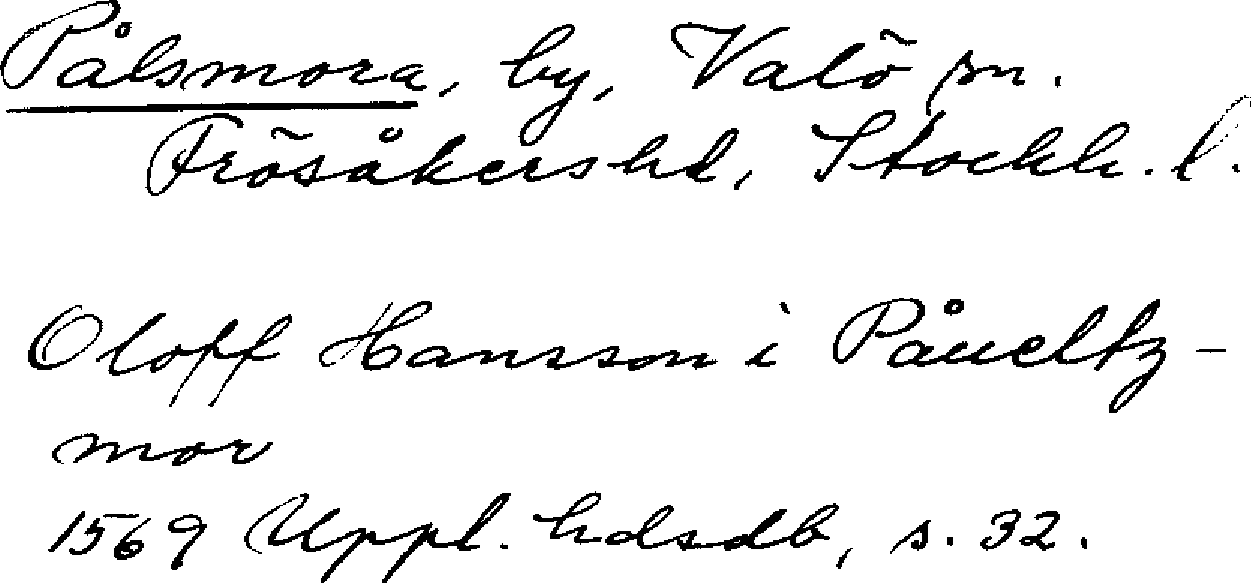 Pålsmora, by, Valö sn.
Frösåkers hd, Stockh. l.
Oloff Hansson i Påueltz-
mor
1569 Uppl. hdsdb, s. 32.